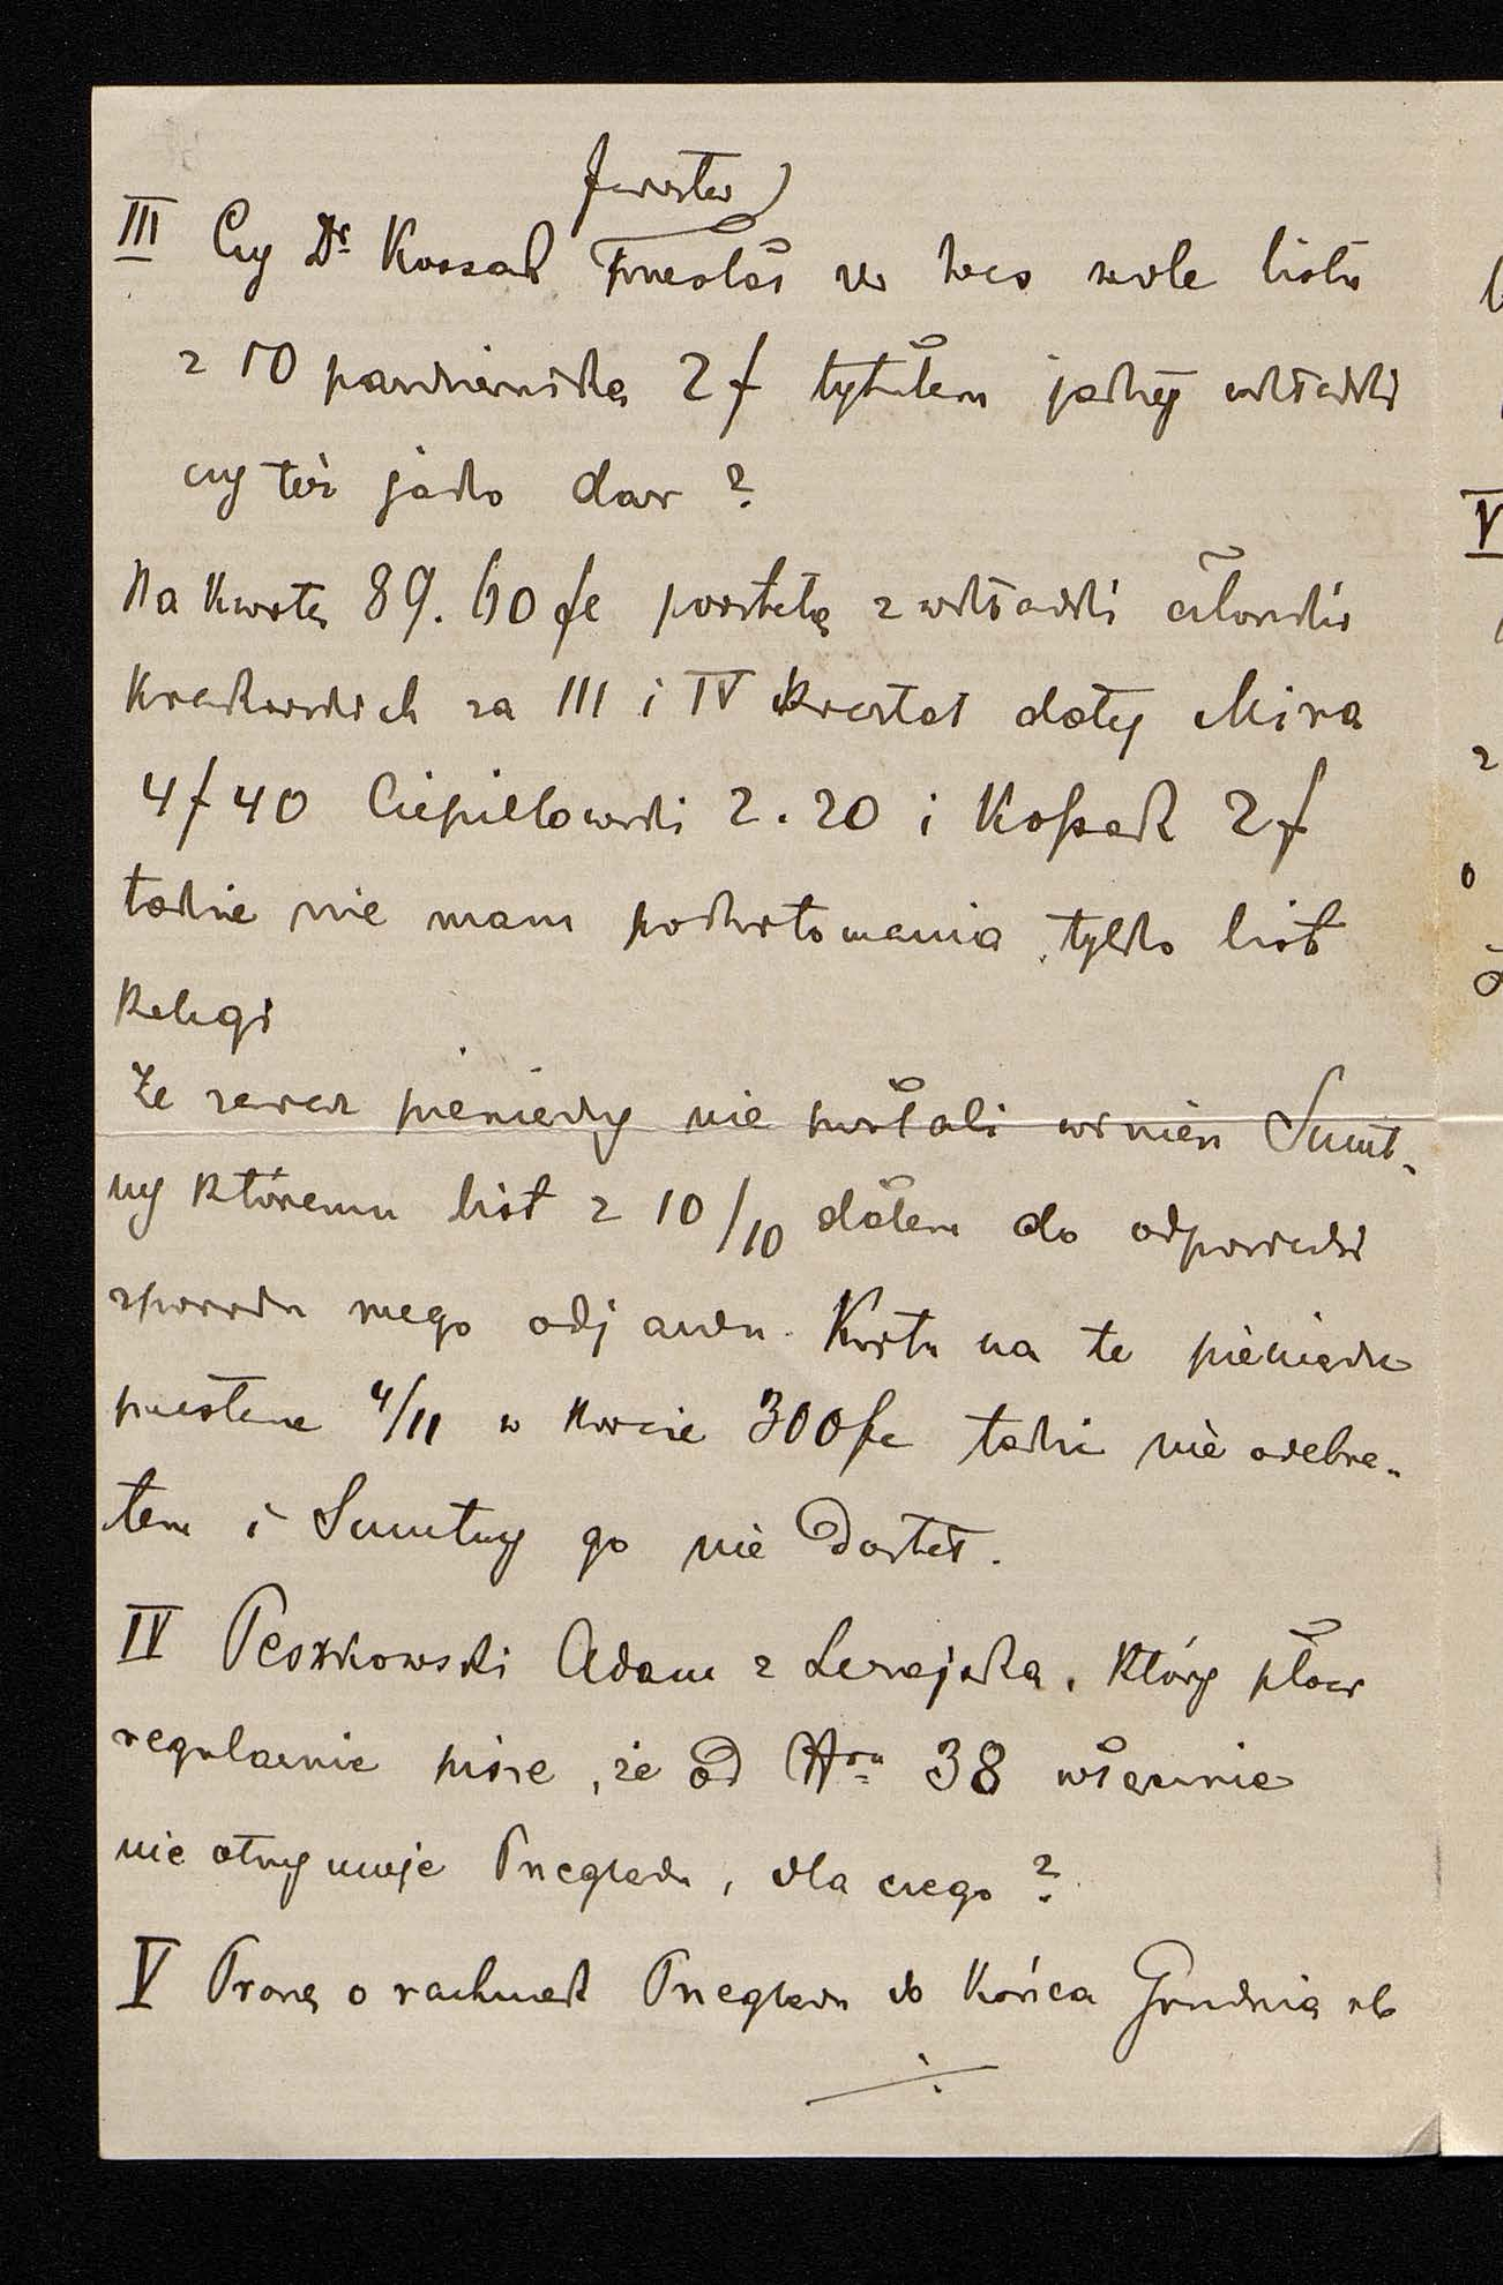 III Czy Dr Kossak przesłał w
z 10 października 2 f tytułem jakiej wkładki
czy też jako dar ?
Na kwotę 89. 60 fe powstałą z wkładki członków
krakowskich za III i IV kwartał dały Mira
4 f 40 Ciepielowski 2.20 i Kossak 2 f
także nie mam pokwitowania tylko list
Kelegi
Że zaraz pieniędzy nie posłali winien Smut-
ny któremu list z 10/10 dałem do odpowiedzi
z powodu mego odjazdu. Kwitu na te pieniądze
przesłane 4/11 w kwocie 300 fe także nie odebra-
łem i Smutny go nie dostał.
IV Peszkowski Adam z Leżajska, który płaci
regularnie pisze, że od Nru 38 włącznie
nie otrzymuje Przeglądu, dla czego ?
V Proszę o rachunek Przeglądu do końca Grudnia rb